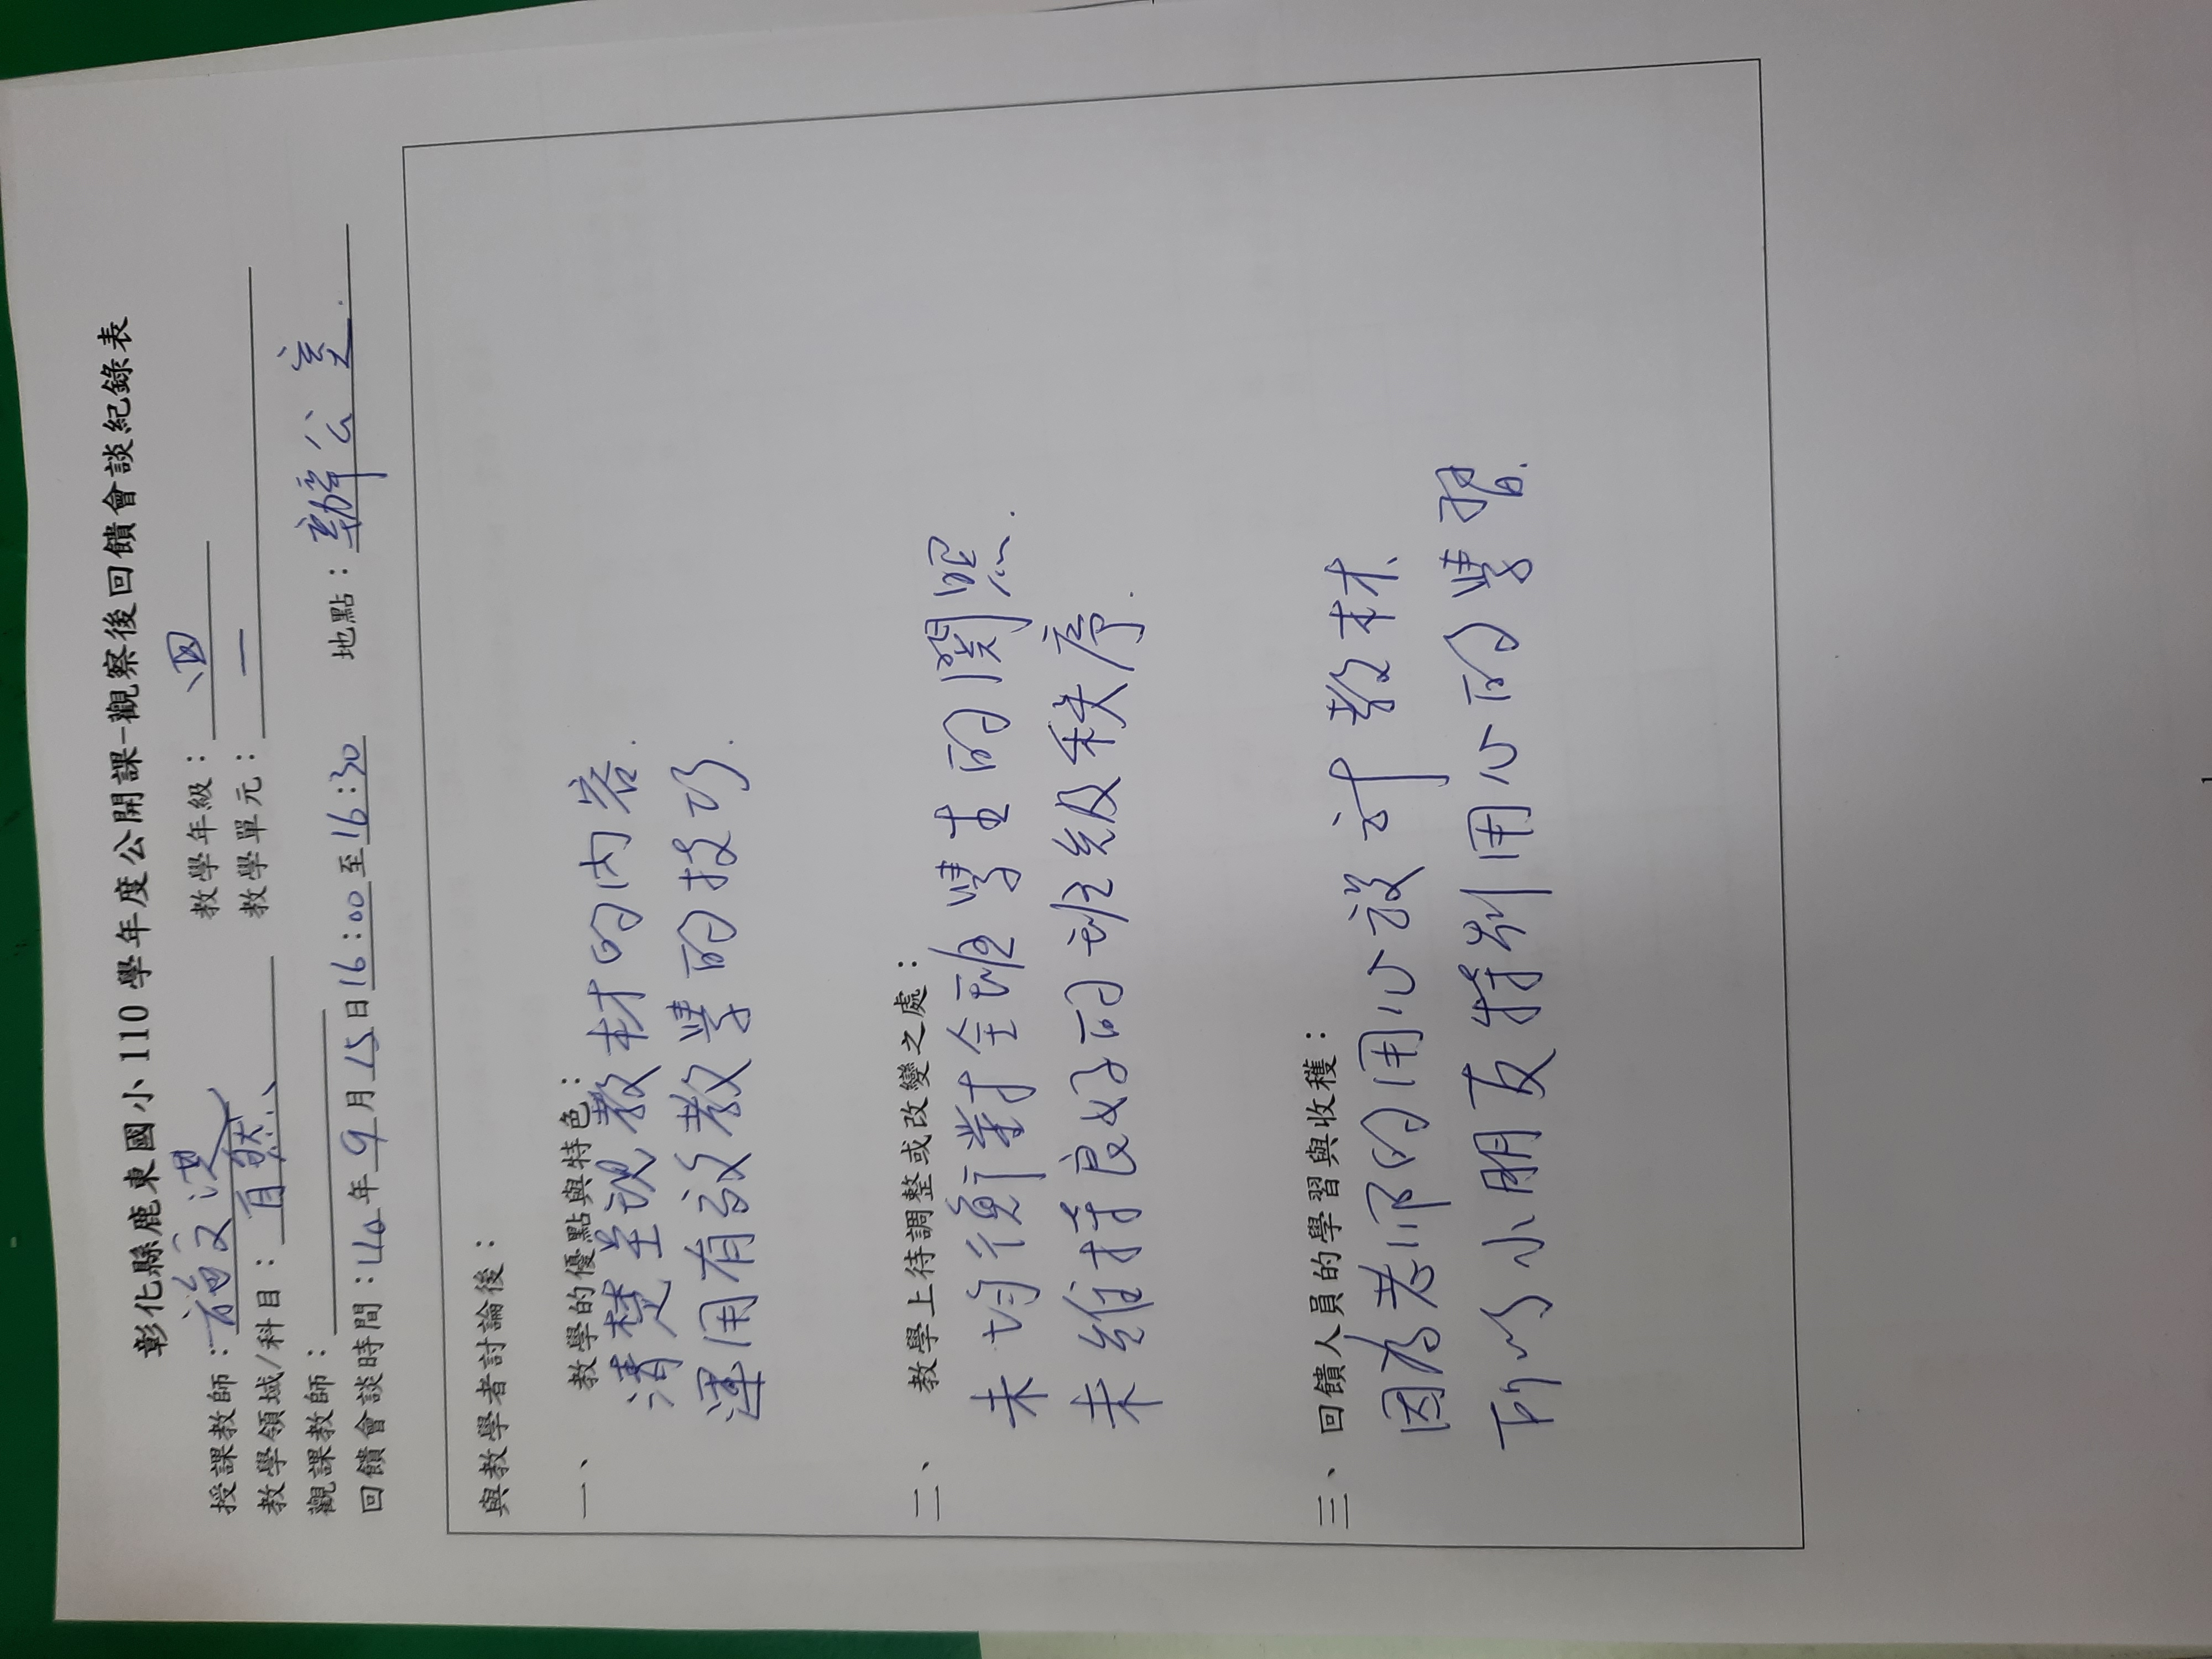 彰化縣鹿東國小 110 學年度公開課-觀察後回饋會談紀錄表
授課教師：施文 教學年級：四
教學領域/科目：自然 教學單元：一
觀課教師：
回饋會談時間：110年9月15日16:00至16:30 地點：辦公室.
與教學者討論後：
一、 教學的優點與特色：
清楚呈現教材的內容.
運用有效教學的技巧.
二、 教學上待調整或改變之處：
未均衡對全班學生的關照.
未維持良好的班級秩序.
三、 回饋人員的學習與收穫：
因為老师的用心設計教材、
所以小朋友特別用心的學習.